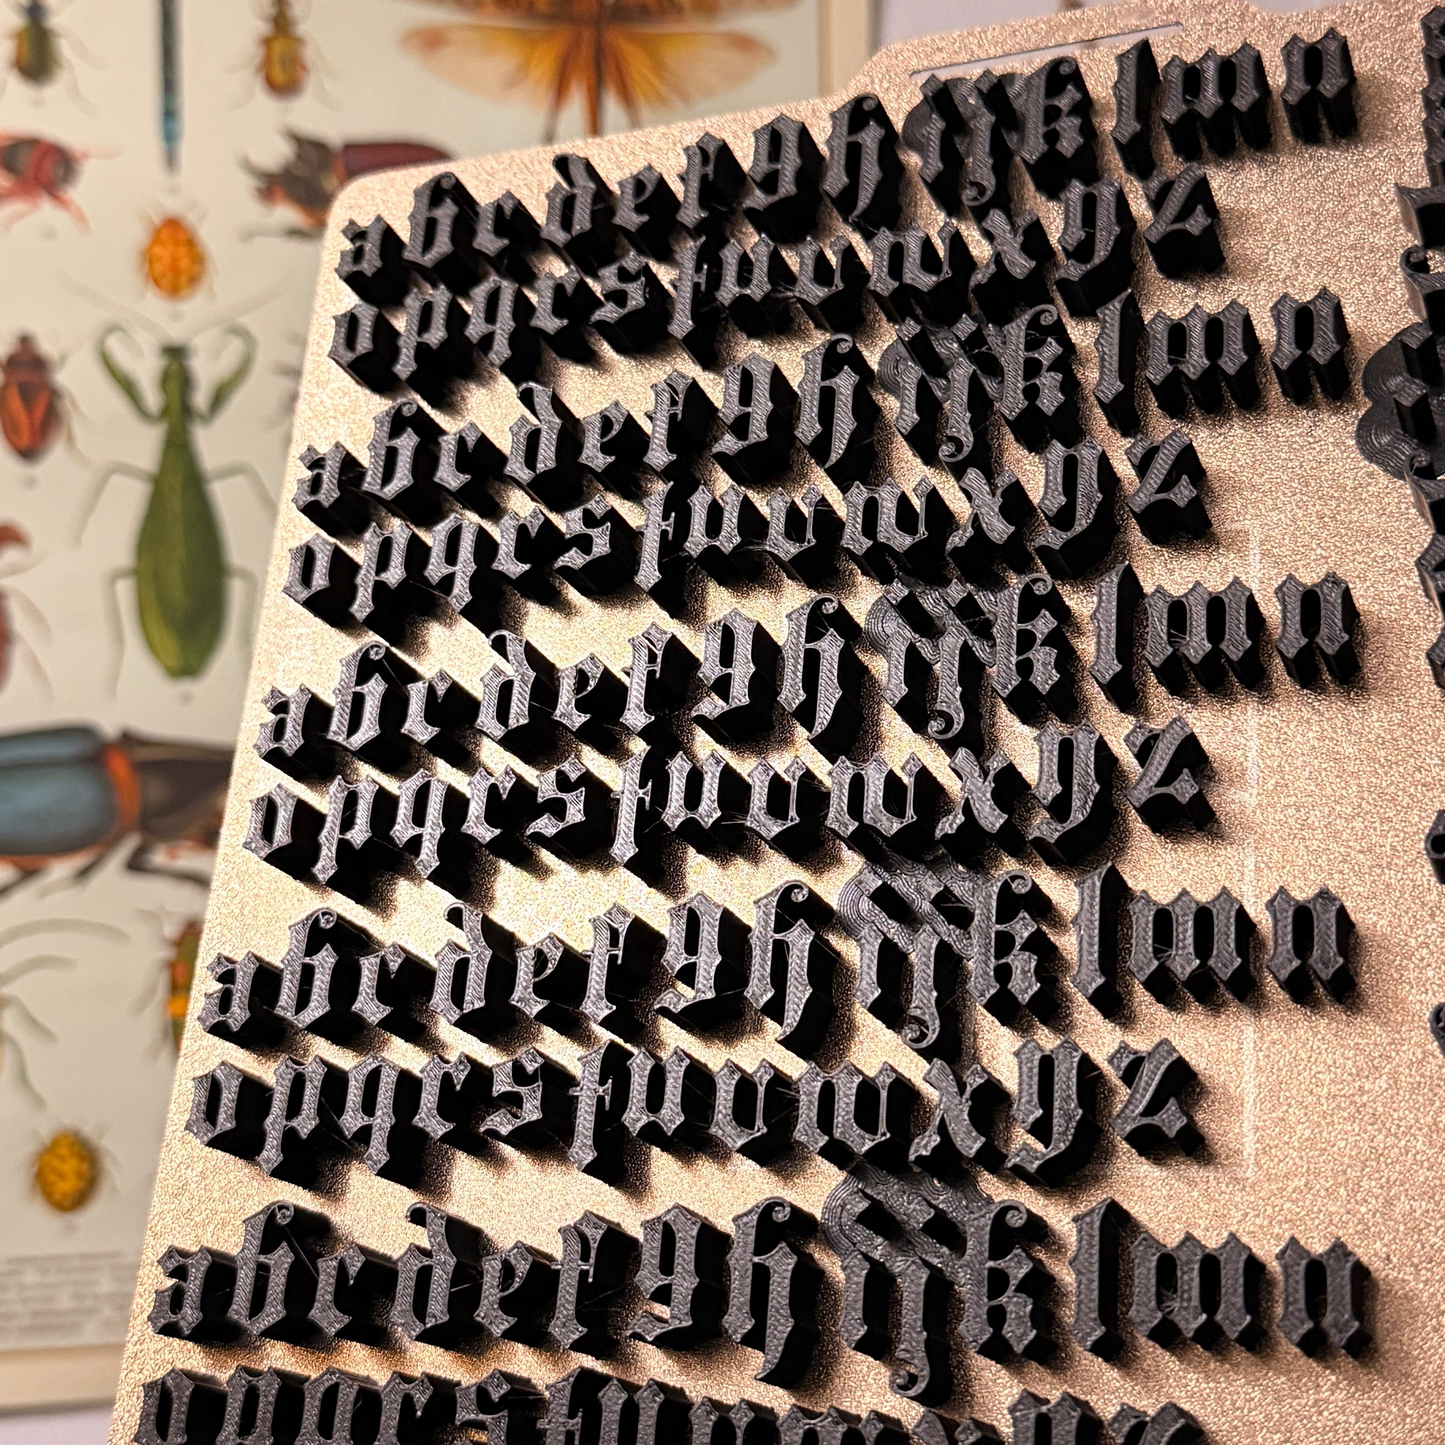 abcdefghijklmn
opqrstuvwxyz
abcdefghijklmn
opqrstuvwxyz
abcdefghijklmn
opqrstuvwxyz
abcdefghijklmn
opqrstuvwxyz
abcdefghijklmn
opqrstuvwxyz